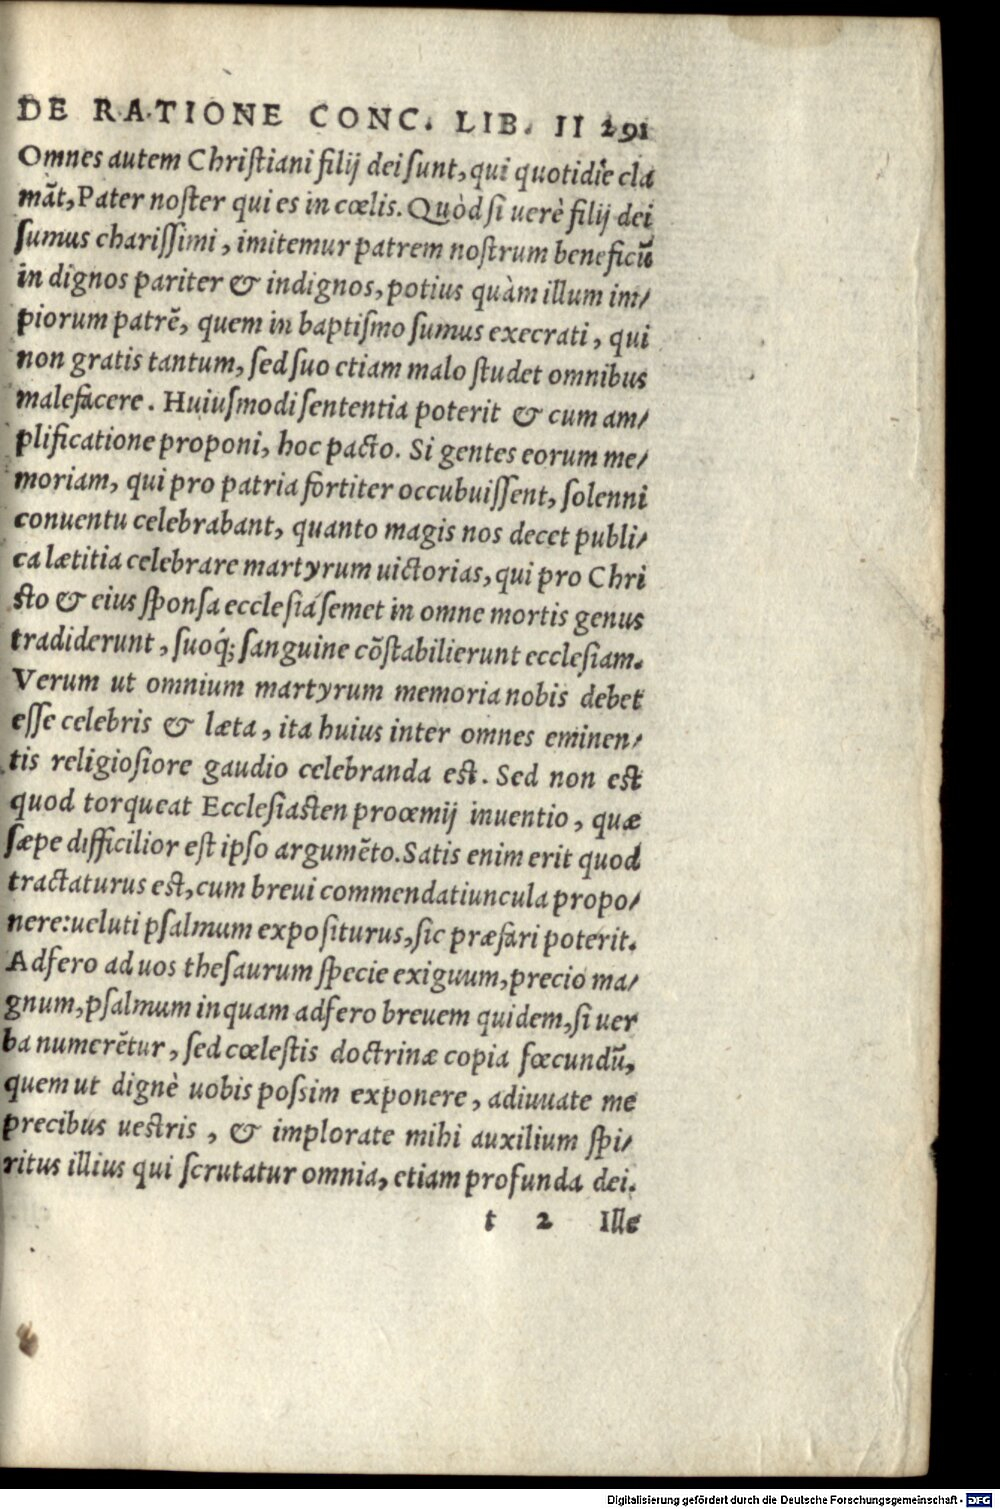 DE RATIONE CONC. LIB. II 291
Omnes autem Chriſtiani filij dei ſunt, qui quotidie cla
māt, Pater noſter qui es in cœlis. Quòd ſi uerè filij dei
ſumus chariſſimi, imitemur patrem noſtrum beneficū
in dignos pariter & indignos, potius quàm illum im/
piorum patrē, quem in baptiſmo ſumus execrati, qui
non gratis tantum, ſed ſuo etiam malo ſtudet omnibus
malefacere. Huiuſmodi ſententia poterit & cum am/
plificatione proponi, hoc pacto. Si gentes eorum me/
moriam, qui pro patria fortiter occubuiſſent, ſolenni
conuentu celebrabant, quanto magis nos decet publi/
ca lætitia celebrare martyrum uictorias, qui pro Chri
ſto & eius ſponſa eccleſia ſemet in omne mortis genus
tradiderunt, ſuoq́; ſanguine cōſtabilierunt eccleſiam.
Verum ut omnium martyrum memoria nobis debet
eſſe celebris & læta, ita huius inter omnes eminen/
tis religioſiore gaudio celebranda eſt. Sed non eſt
quod torqueat Eccleſiaſten proœmij inuentio, quæ
ſæpe difficilior eſt ipſo argumēto. Satis enim erit quod
tractaturus eſt, cum breui commendatiuncula propo/
nere: ueluti pſalmum expoſiturus, ſic præfari poterit.
Adfero ad uos theſaurum ſpecie exiguum, precio ma/
gnum, pſalmum inquam adfero breuem quidem, ſi uer
ba numerētur, ſed cœleſtis doctrinæ copia fœcundū,
quem ut dignè uobis poſsim exponere, adiuuate me
precibus ueſtris, & implorate mihi auxilium ſpi/
ritus illius qui ſcrutatur omnia, etiam profunda dei.
t 2 Ille
Digitalisierung gefördert durch die Deutsche Forschungsgemeinschaft - DFG